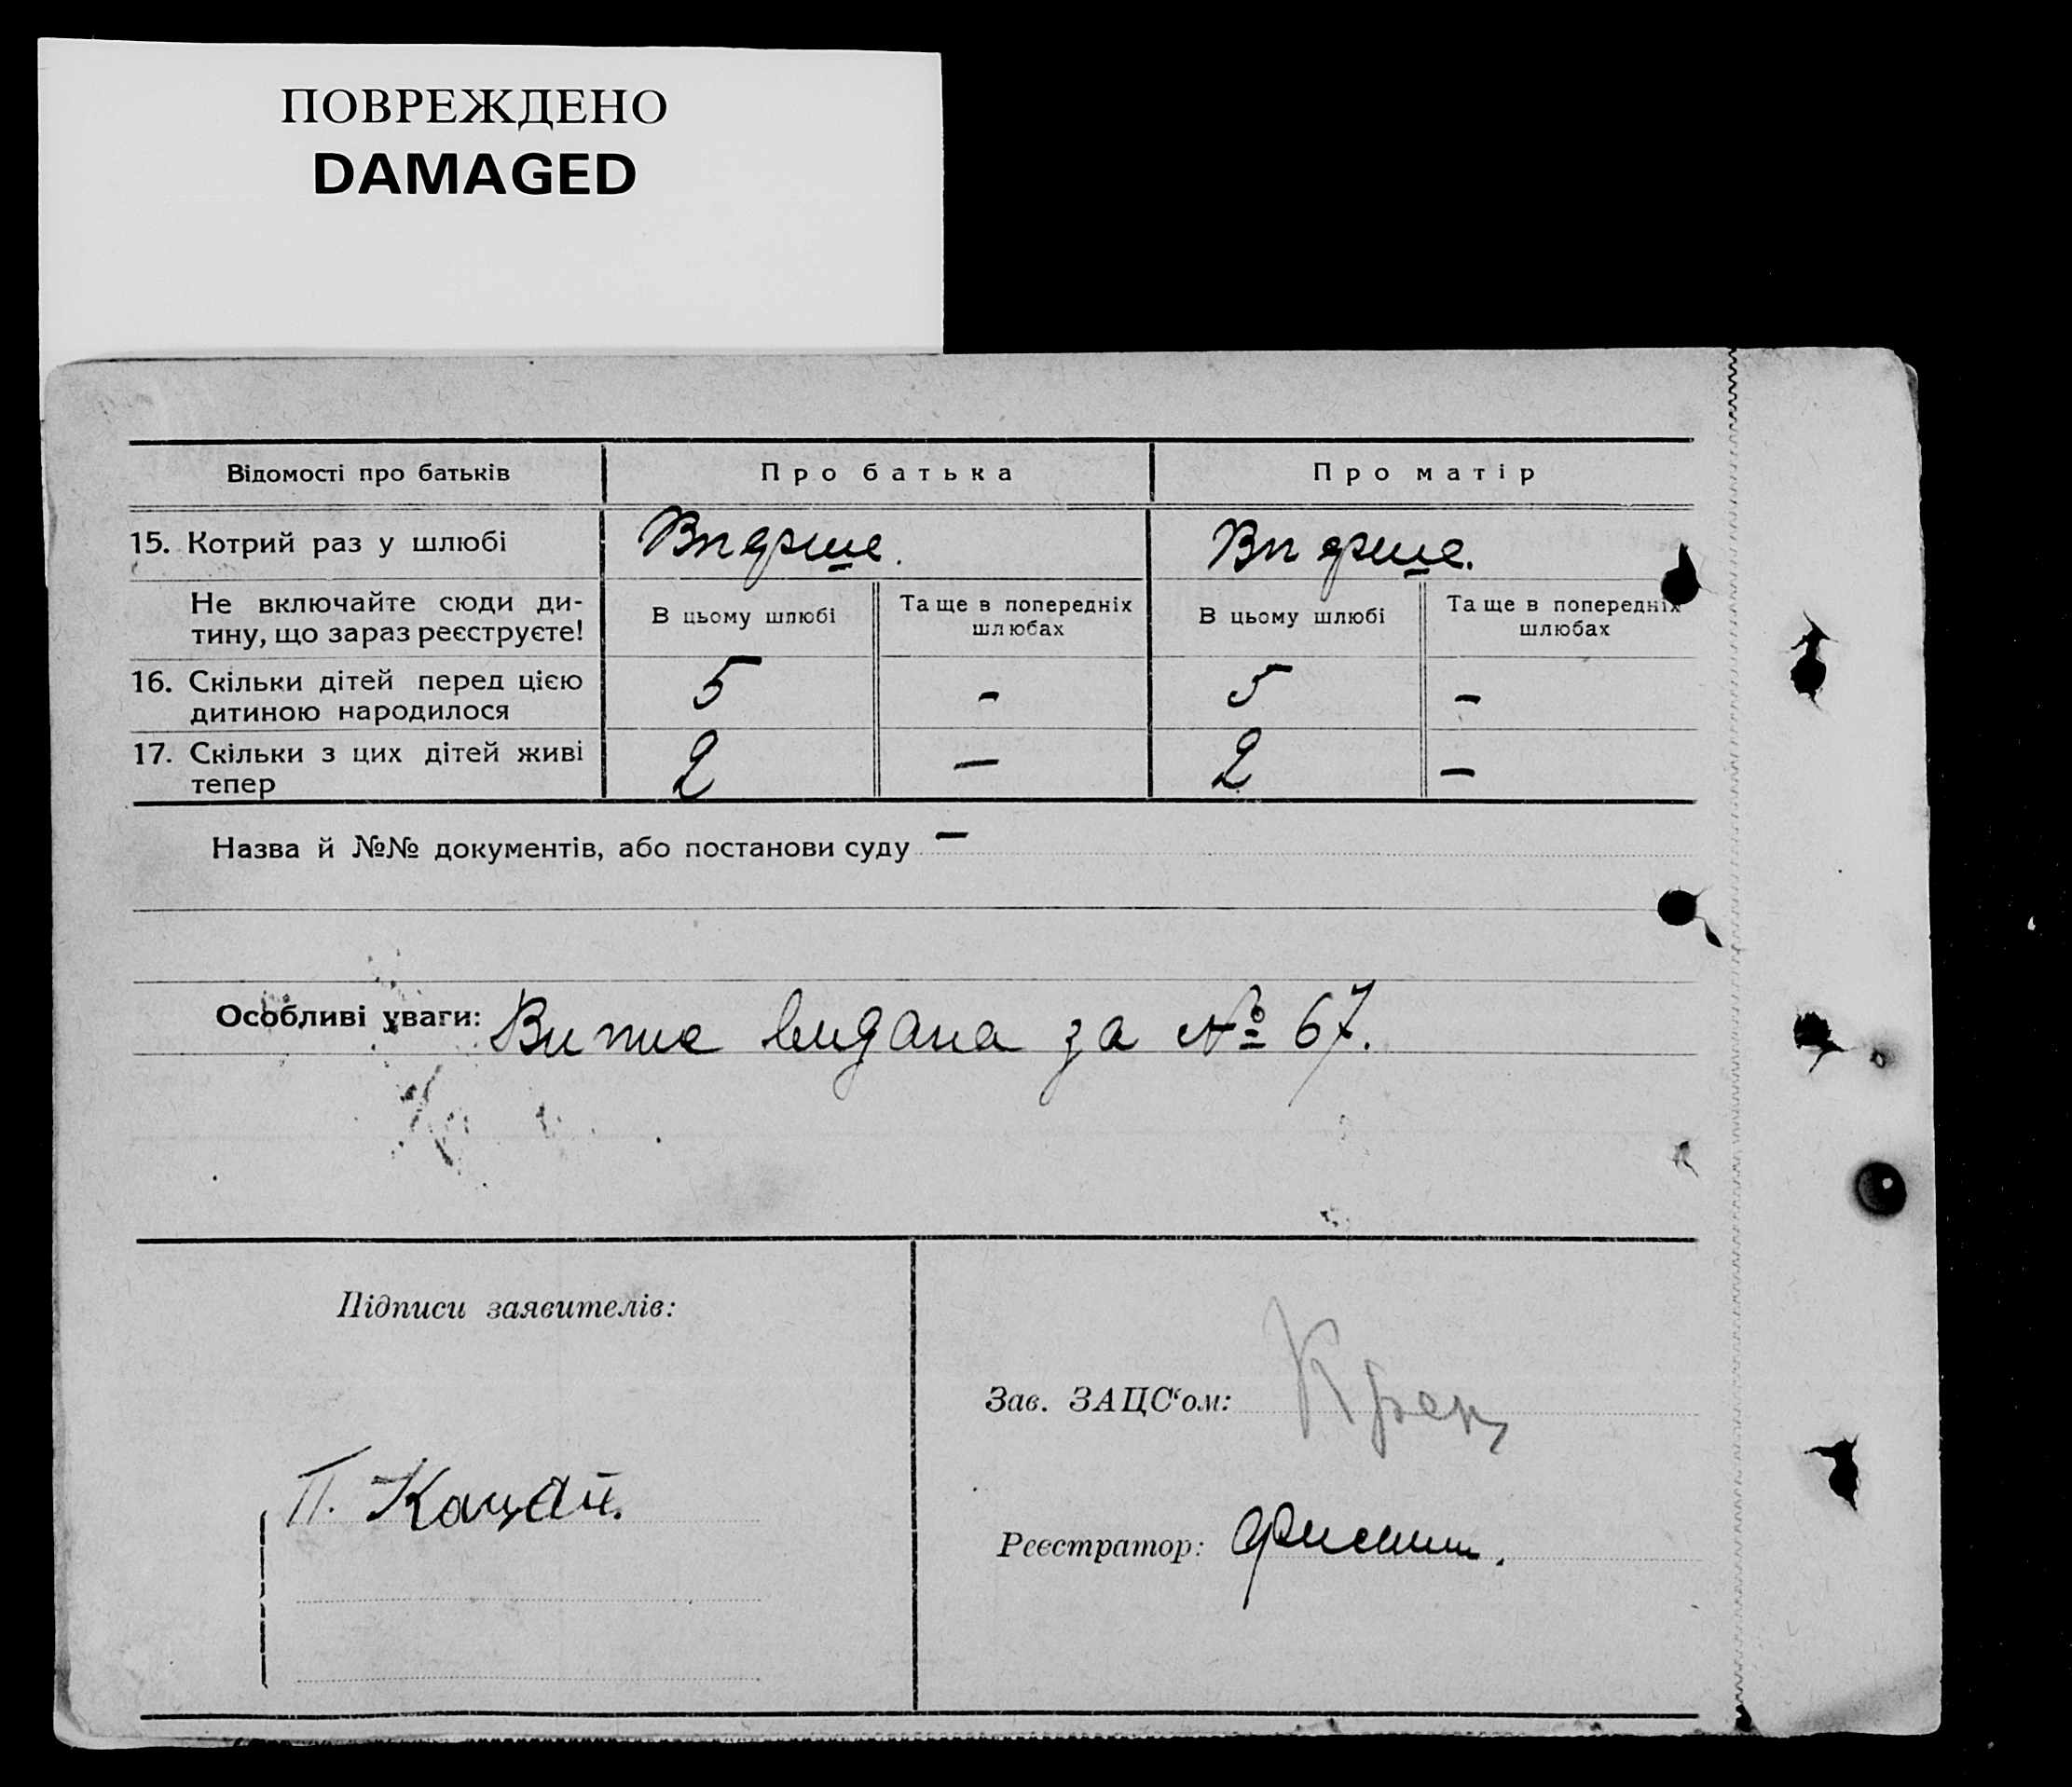 ПОВРЕЖДЕНО
DAMAGED
Відомості про батьків
Про батька
Про матір
15. Котрий раз у шлюбі
Вперше.
Вперше.
Не включайте сюди ди-
тину, що зараз реєструєте!
В цьому шлюбі
Та ще в попередніх
шлюбах
В цьому шлюбі
Та ще в попередніх
шлюбах
16. Скільки дітей перед цією
дитиною народилося
5
-
5
-
17. Скільки з цих дітей живі
тепер
2
—
2
—
Назва й №№ документів, або постанови суду —
Особливі уваги: Випис видана за № 67.
Підписи заявителів:
Зав. ЗАЦС‘ом:
П. Кацай.
Реєстратор: